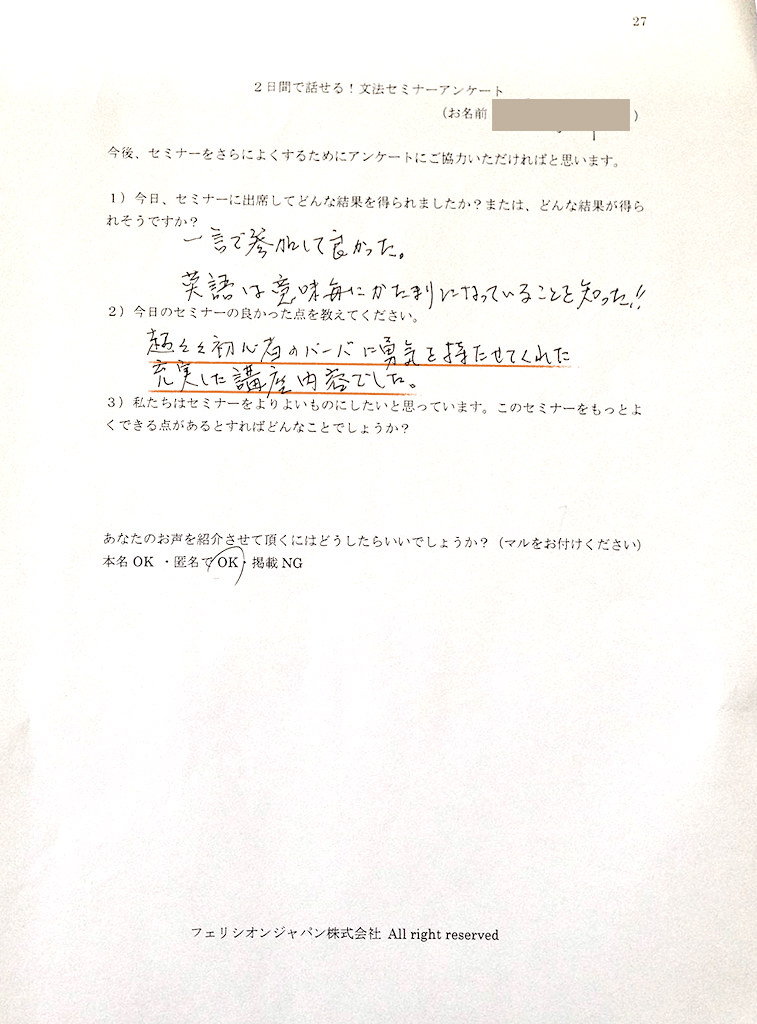 27
2日間で話せる!文法セミナーアンケート
(お名前 )
今後、セミナーをさらによくするためにアンケートにご協力いただければと思います。
1)今日、セミナーに出席してどんな結果を得られましたか?または、どんな結果が得ら
れそうですか?
一言で参加して良かった。
英語は意味毎にかたまりになっていることを知った!!
2)今日のセミナーの良かった点を教えてください。
超々々初心者のバーバに勇気を持たせてくれた
充実した講座内容でした。
3)私たちはセミナーをよりよいものにしたいと思っています。このセミナーをもっとよ
くできる点があるとすればどんなことでしょうか?
あなたのお声を紹介させて頂くにはどうしたらいいでしょうか?(マルをお付けください)
本名 OK ・匿名で OK・掲載 NG
フェリシオンジャパン株式会社 All right reserved